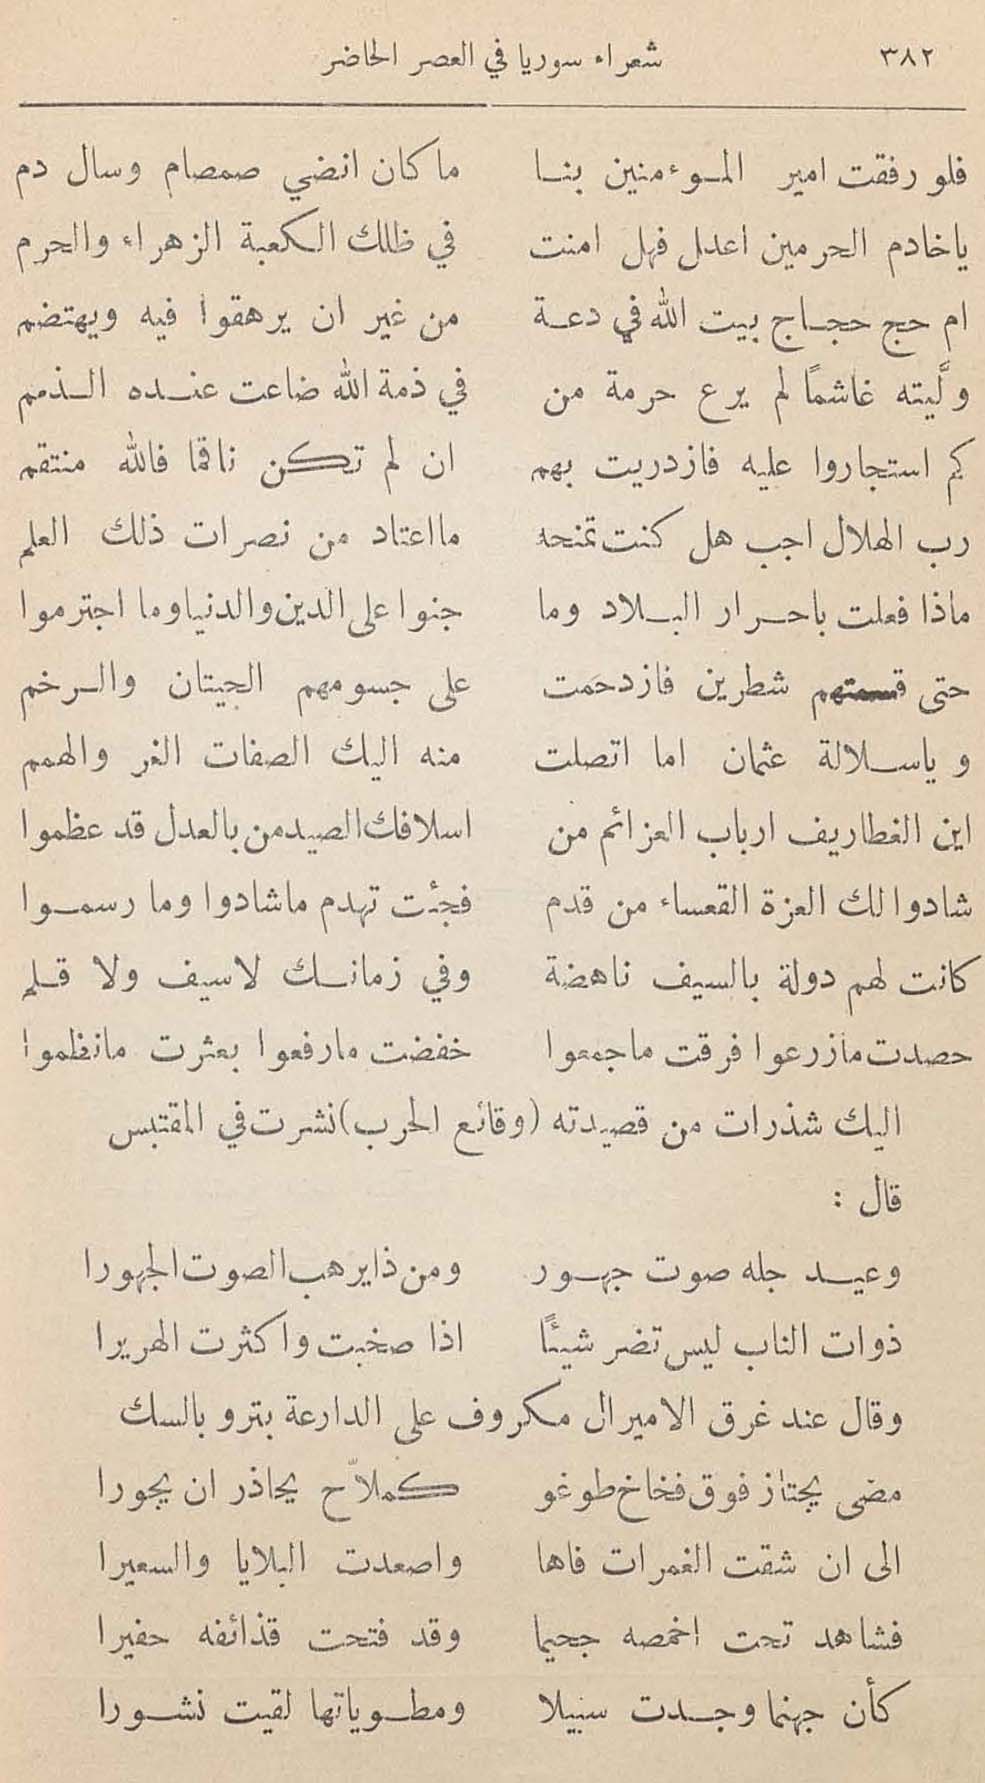 ٣٨٢ شعراء سوريا في العصر الحاضر
فلو رفقت امير الموءمنين بنا ما كان انضي صمصام وسال دم
ياخادم الحرمين اعدل فهل امنت في ظلك الكعبة الزهراء والحرم
ام حج حجاج بيت الله في دعة من غير ان يرهقوا فيه ويهتضم
ولَّيته غاشماً لم يرع حرمة من في ذمة الله ضاعت عنده الذمم
كم استجاروا عليه فازدريت بهم ان لم تكن ناقما فالله منتقم
رب الهلال اجب هل كنت تمنحه ما اعتاد من نصرات ذلك العلم
ماذا فعلت باحرار البلاد وما جنوا على الدين والدنيا وما اجترموا
حتى قسمتهم شطرين فازدحمت على جسومهم الحيتان والرخم
وياسلالة عثمان اما اتصلت منه اليك الصفات الغر والهمم
اين الغطاريف ارباب العزائم من اسلافك الصيد من بالعدل قد عظموا
شادوا لك العزة القعساء من قدم فجئت تهدم ماشادوا وما رسموا
كانت لهم دولة بالسيف ناهضة وفي زمانك لا سيف ولا قلم
حصدت مازرعوا فرقت ماجمعوا خفضت مارفعوا بعثرت مانظموا
اليك شذرات من قصيدته (وقائع الحرب) نشرت في المقتبس
قال :
وعيد جله صوت جهور ومن ذا يرهب الصوت الجهورا
ذوات الناب ليس تضر شيئاً اذا صخبت واكثرت الهريرا
وقال عند غرق الاميرال مكروف على الدارعة بترو بالسك
مضى يجتاز فوق فخاخ طوغو كملاّح يحاذر ان يجورا
الى ان شقت الغمرات فاها واصعدت البلايا والسعيرا
فشاهد تحت اخمصه جحيما وقد فتحت قذائفه حفيرا
كأن جهنما وجدت سبيلا ومطوياتها لقيت نشورا